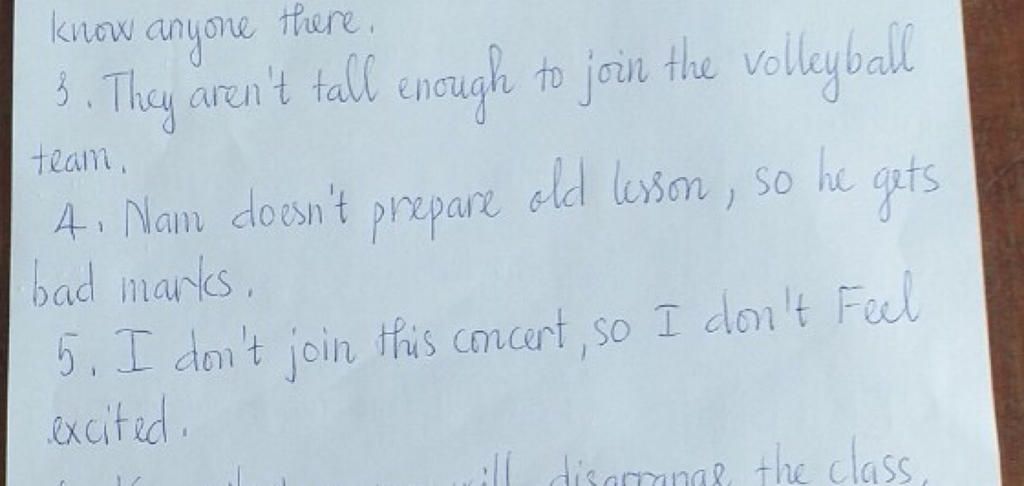 know anyone there.
3. They aren't tall enough to join the volleyball
team.
4. Nam doesn't prepare old lesson, so he gets
bad marks.
5. I don't join this concert, so I don't Feel
excited.
will disarrange the class.